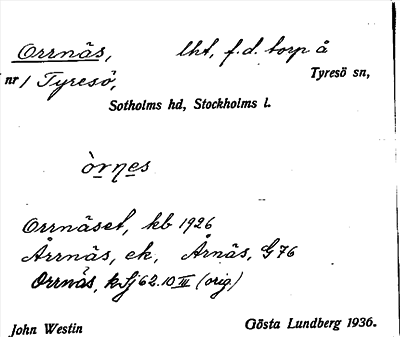 Orrnäs, lht, f.d. torp å
nr 1 Tyresö, Tyresö sn,
Sotholms hd, Stockholms l.
òrnes
Orrnäset, kb 1926
Årrnäs, ek, Årnäs, G76
Orrnäs, k Sj 62.10 III (orig)
John Westin Gösta Lundberg 1936.